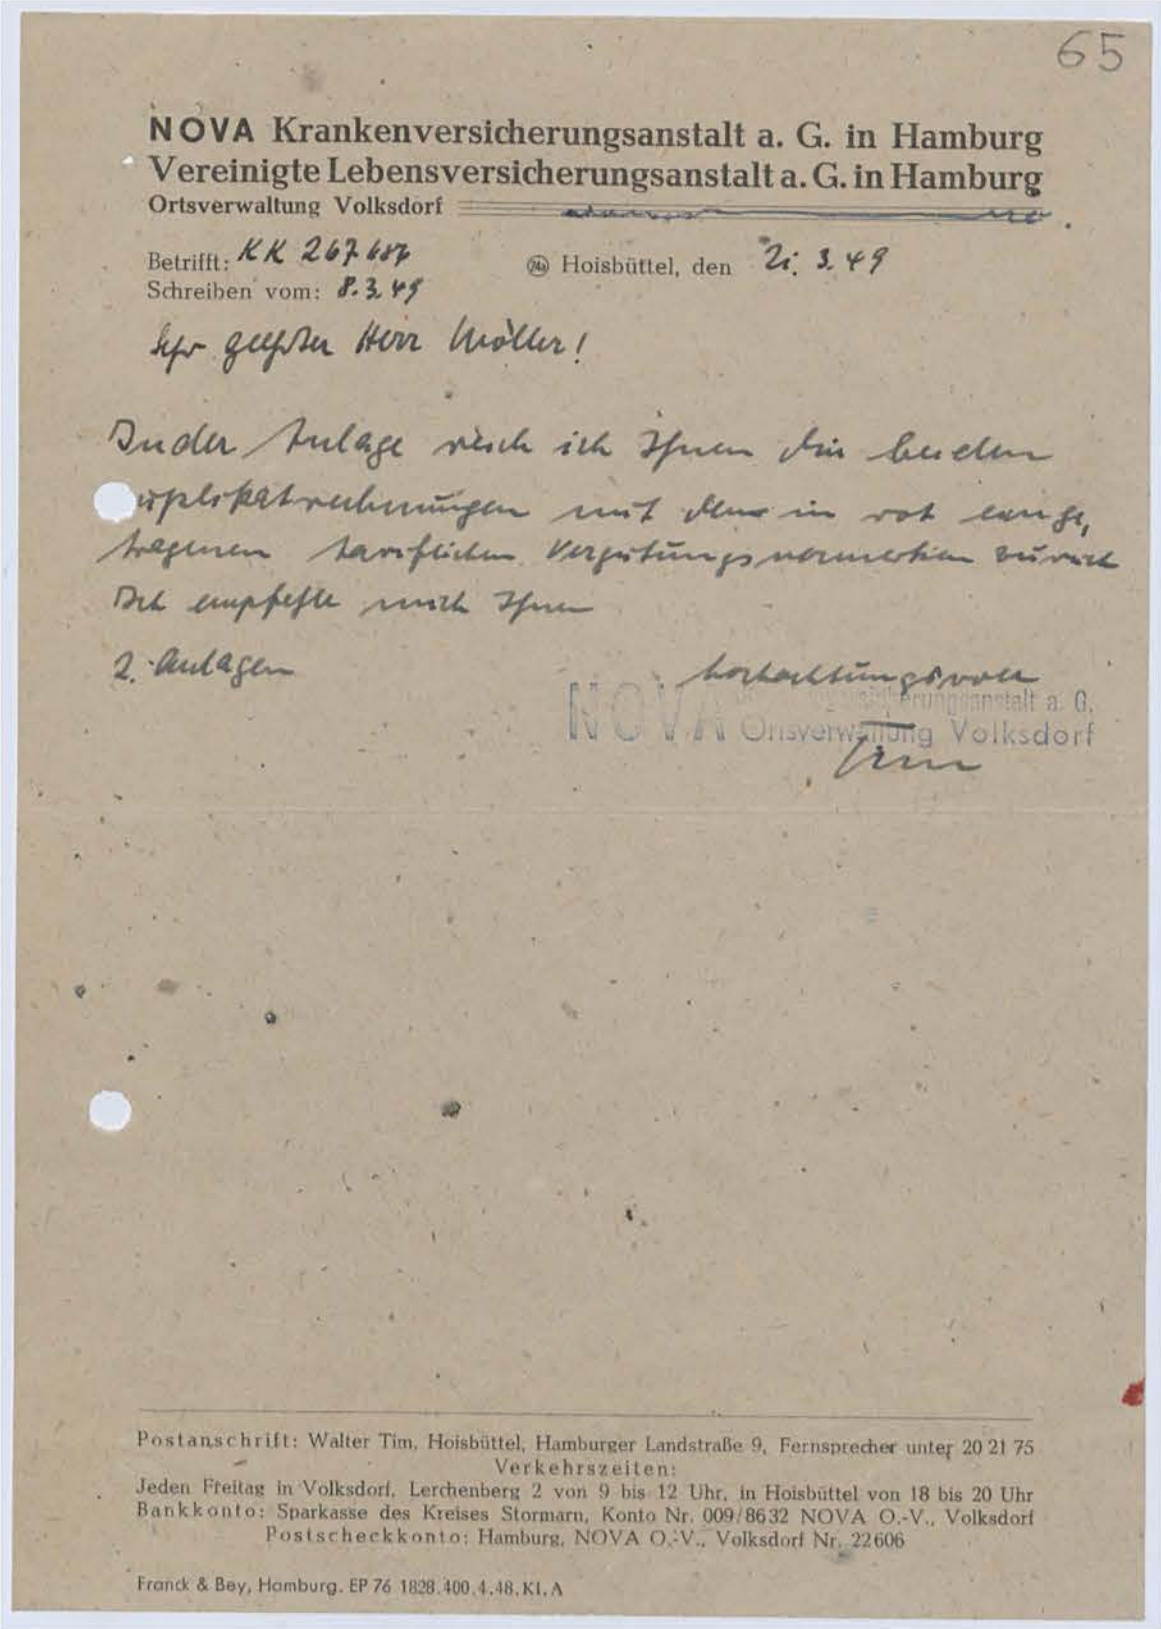 65
NOVA Krankenversicherungsanstalt a. G. in Hamburg
Vereinigte Lebensversicherungsanstalt a. G. in Hamburg
Ortsverwaltung Volksdorf
Betrifft: KK 267687
(24a) Hoisbüttel, den 21. 3. 49
Schreiben vom: 8.3.49
Sehr geehrter Herr Möller!
In der Anlage reich ich Ihnen die beiden
uplikatrechnungen mit den in rot einge,
tragenen tariflichen Vergütungsvermerken zurück
Ich empfehle mich Ihnen
2. Anlagen
hochachtungsvoll
NOVA Krankenversicherungsanstalt a. G.
Ortsverwaltung Volksdorf
Tim
Postanschrift: Walter Tim, Hoisbüttel, Hamburger Landstraße 9, Fernsprecher unter 20 21 75
Verkehrszeiten:
Jeden Freitag in Volksdorf, Lerchenberg 2 von 9 bis 12 Uhr, in Hoisbüttel von 18 bis 20 Uhr
Bankkonto: Sparkasse des Kreises Stormarn, Konto Nr. 009/8632 NOVA O.-V., Volksdorf
Postscheckkonto: Hamburg, NOVA O.-V., Volksdorf Nr. 22606
Franck & Bey, Hamburg. EP 76 1828.400.4.48. Kl. A